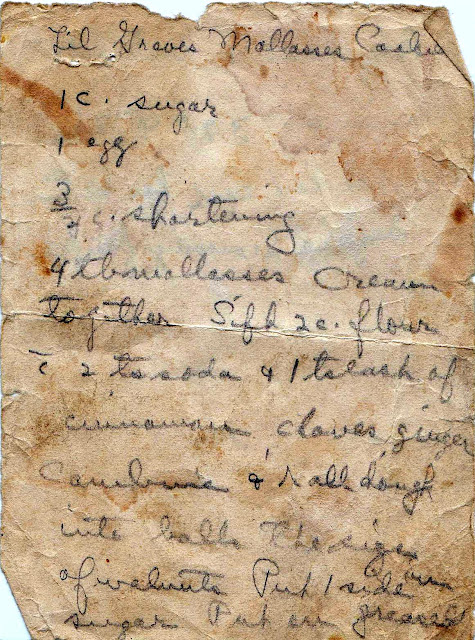 Lil Graves Mollasses Cookies
1 c. sugar
1 egg
3/4 c. shortening
4 tbmollasses Cream
together Sift 2c. flour
c̄ 2 ts soda & 1 ts each of
cinnamon, cloves, ginger
Combine & roll dough
into balls the size
of walnuts Put 1 side in
sugar Put on greased